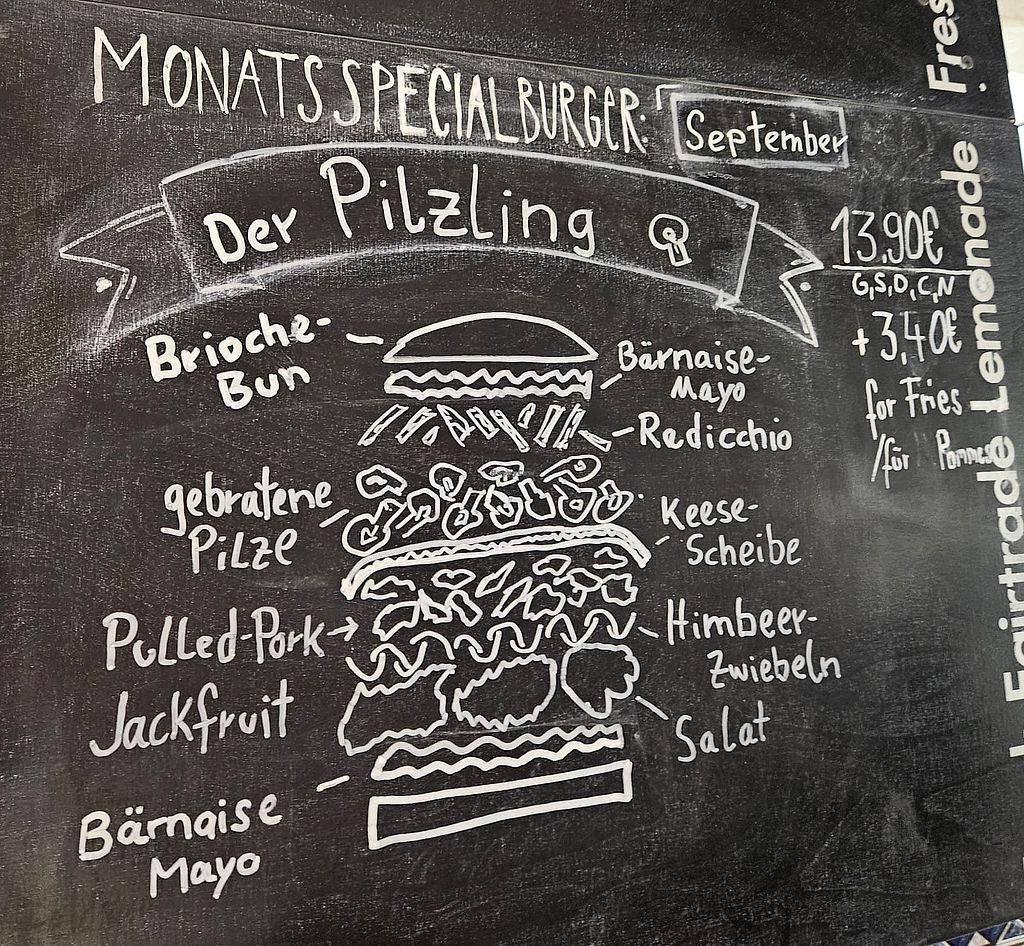 MONATSSPECIALBURGER: September
Der Pilzling
13,90€
G,S,D,C,N
+3,40€
for Fries
/für Pommes
Brioche-
Bun
Bärnaise-
Mayo
Redicchio
gebratene
Pilze
Keese-
Scheibe
Pulled-Pork
Jackfruit
Himbeer-
Zwiebeln
Salat
Bärnaise
Mayo
Fairtrade Lemonade